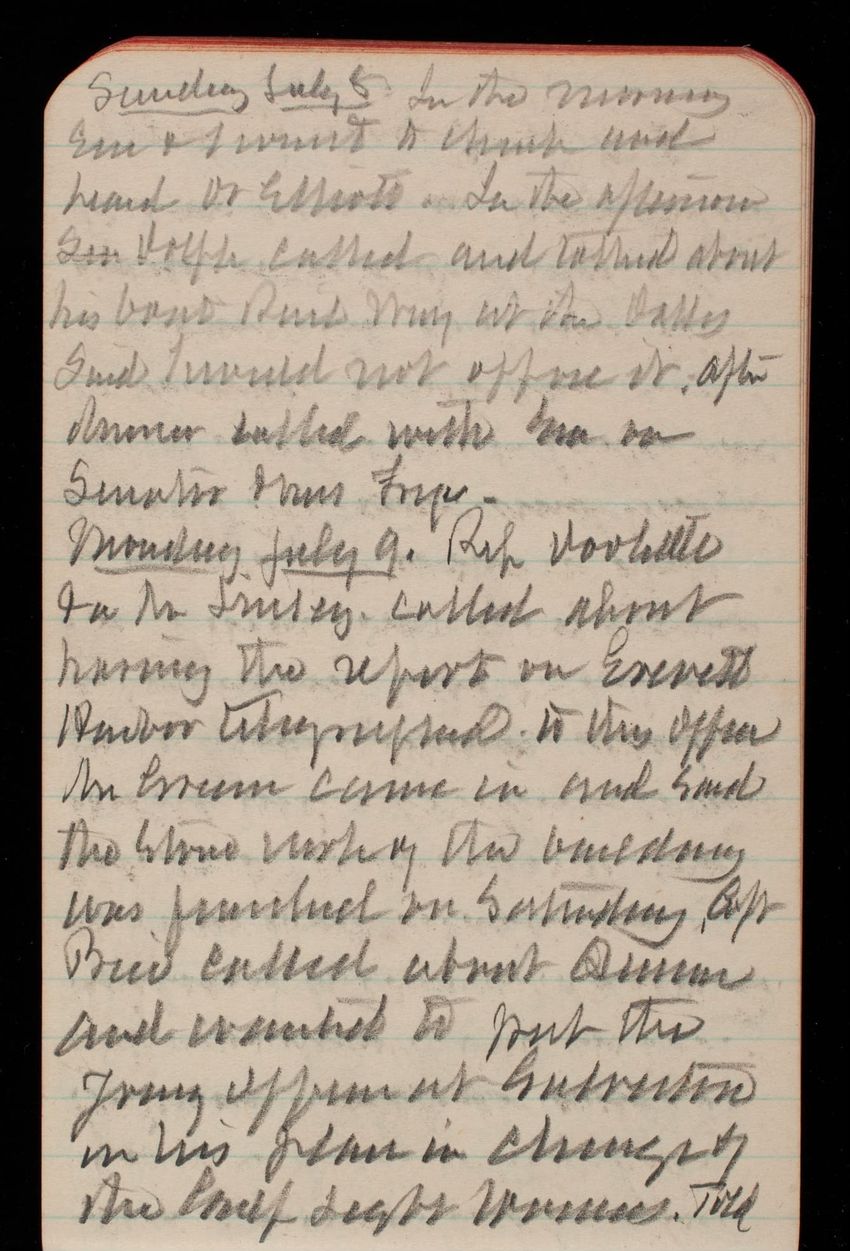 Sunday July 8 In the morning
Em & I went to church and
heard Dr Elliott. In the afternoon
Sen Dolph called and talked about
his boat Rail Way at the Dalles
Said I would not oppose it. After
dinner called with Em on
Senator
Monday July 9. Rep Doolittle
called about
having the report on Everett
Harbor telegraphed to this office
Mr Green came in and said
the Stone work of the building
was finished on Saturday, Capt
called about
and wanted to put the
Young officer at Galveston
in his place in charge of
the Gulf Light Houses. Told